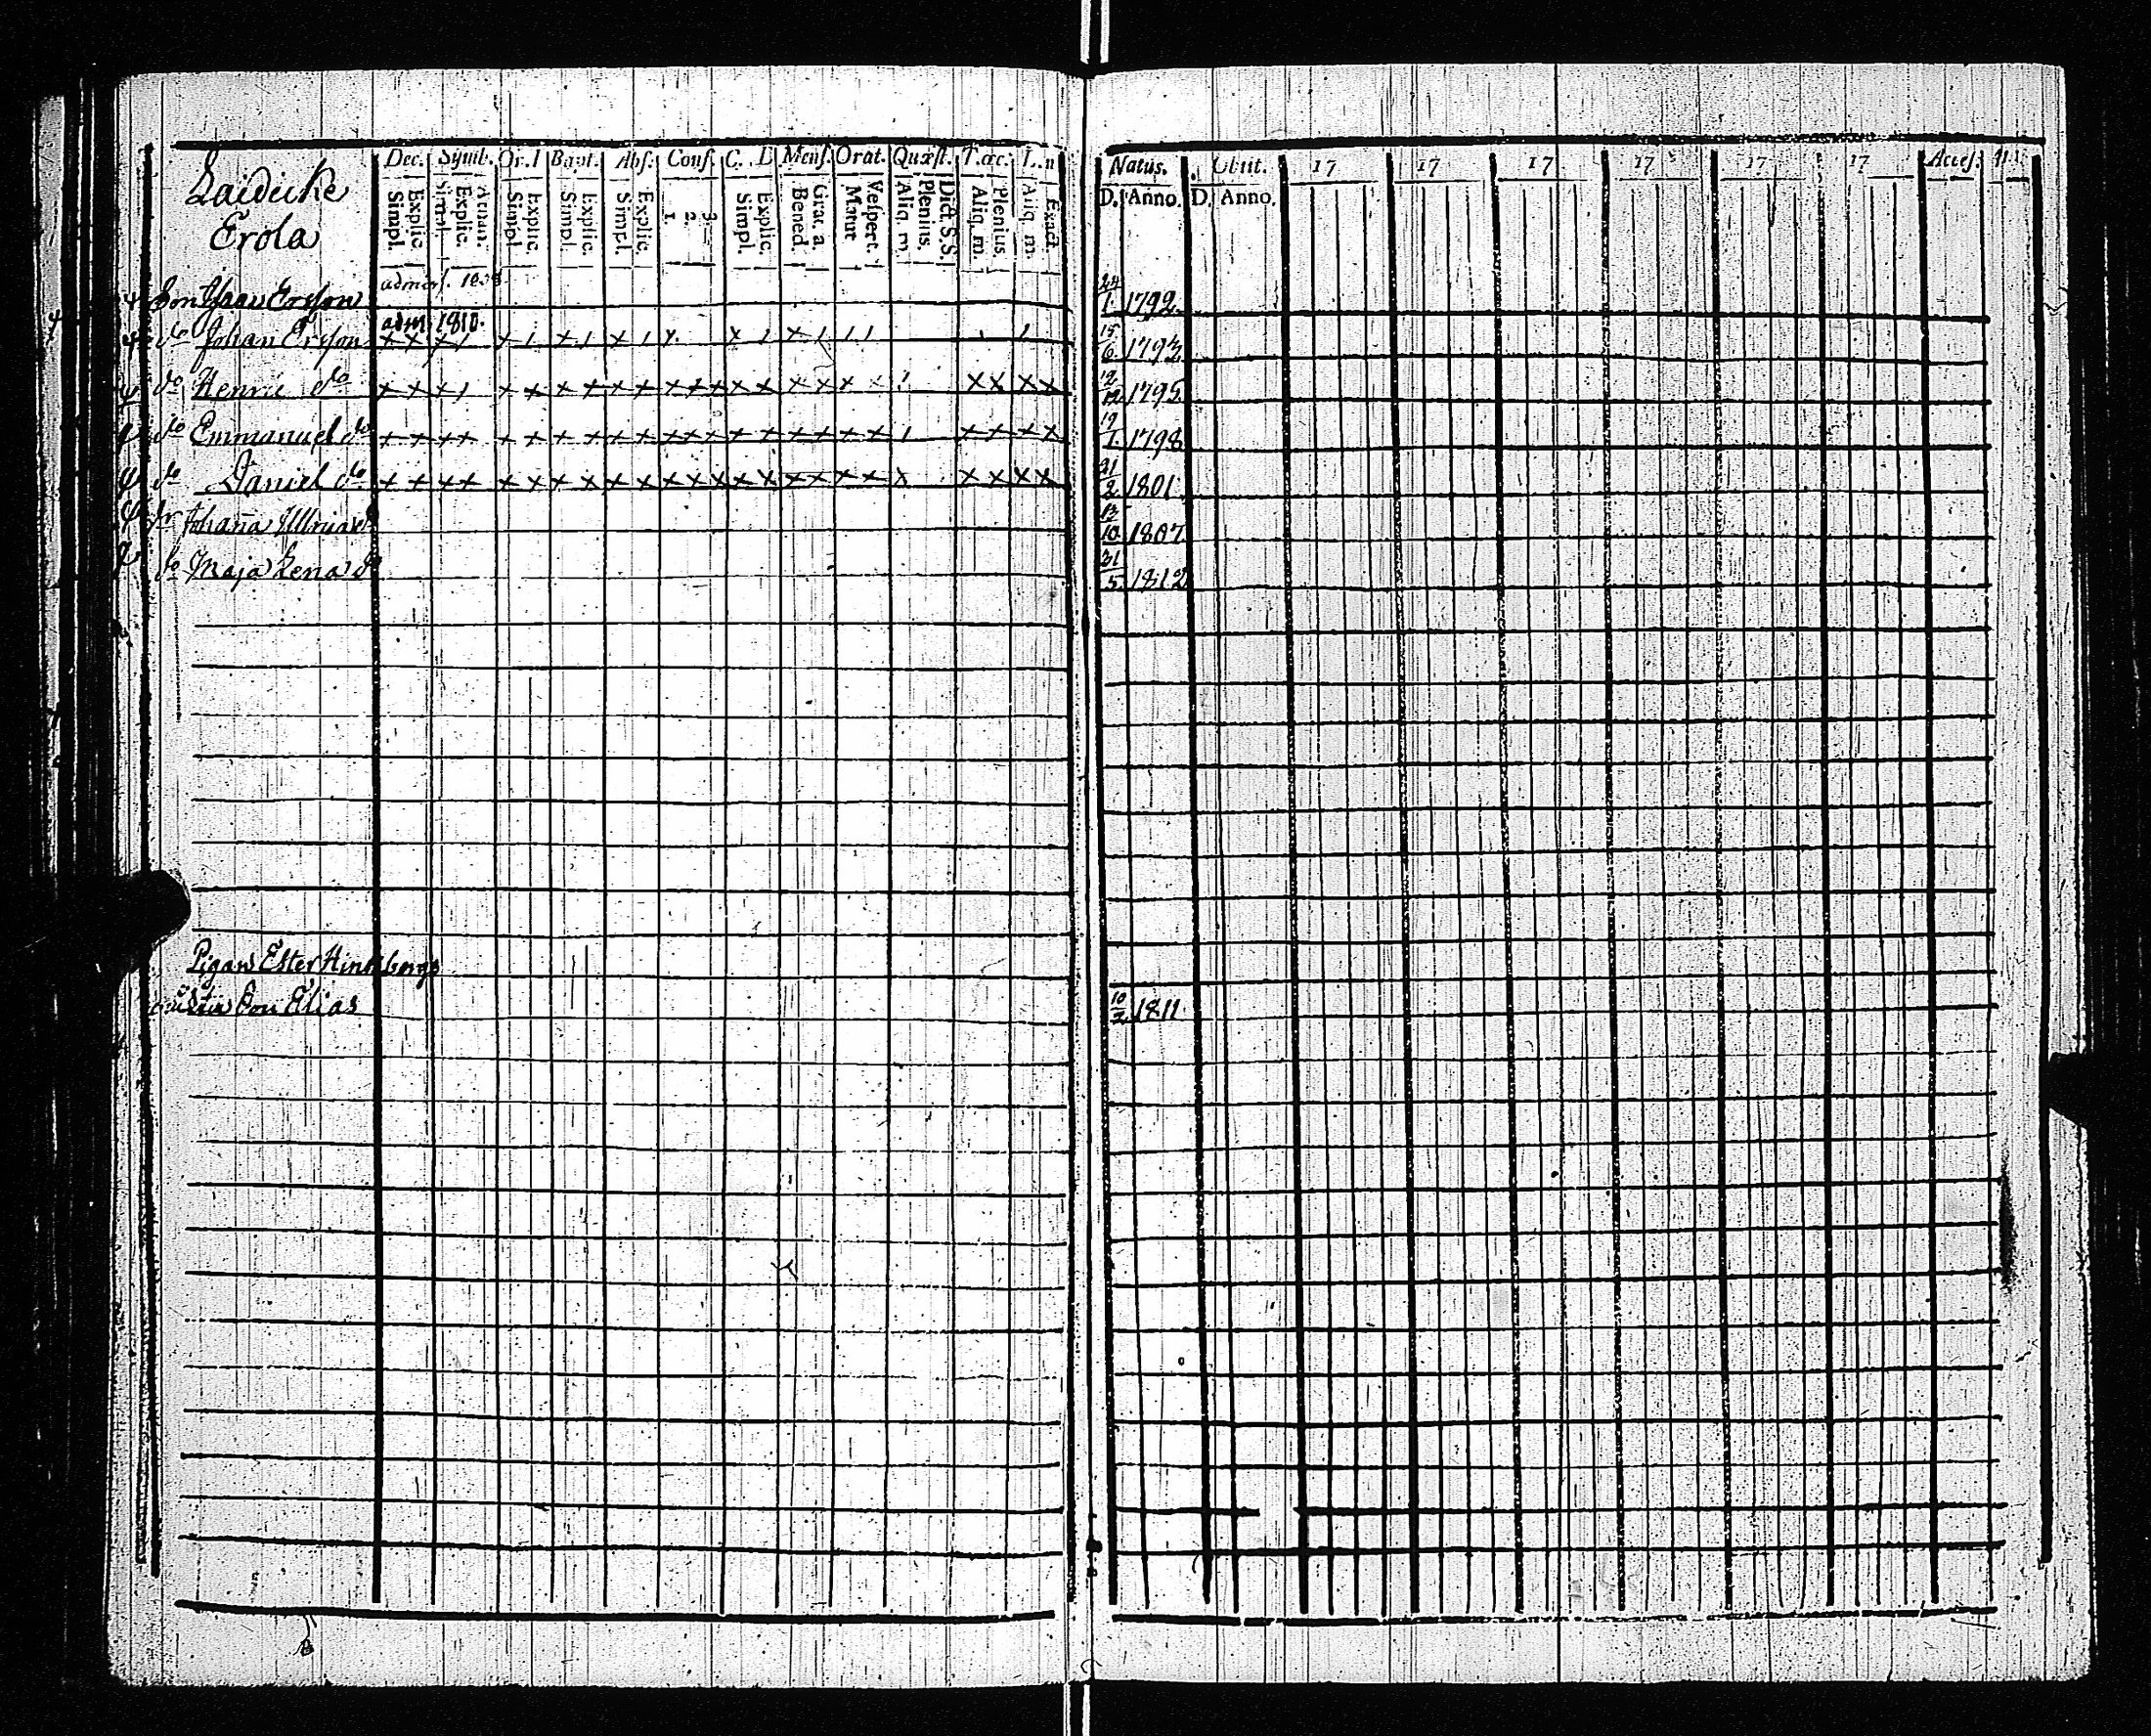 Laidicke
Erola
Dec. Symb. Or. Bapt. Abs. Conf. C. Mens. Orat. Quæst. Tæc.
Simpl. Explic. Simpl. Explic. Athan. Simpl. Explic. Simpl. Explic. Simpl. Explic. 1. 2. 3. Simpl. Explic. Bened. Matut Vespert. Aliq. m. Plenius. Dict. S.S. Aliq. m. Plenius. Aliq. m. Exact
Natus. Obiit. 17 17 17 17 17 17 Acces.
D. Anno. D. Anno.
Son Isaac Ersson 24/1 1792
adm. 1810.
do Johan Ersson 15/6 179
do Henric do 12/12 1795
do Emmanuel do 19/1 1798
do Daniel do 21/2 1801
Johaña Ulrica 13/10 1807
do Maja Lena do 31/5 1812
Pigans Ester
Son Elias 10/2 1811